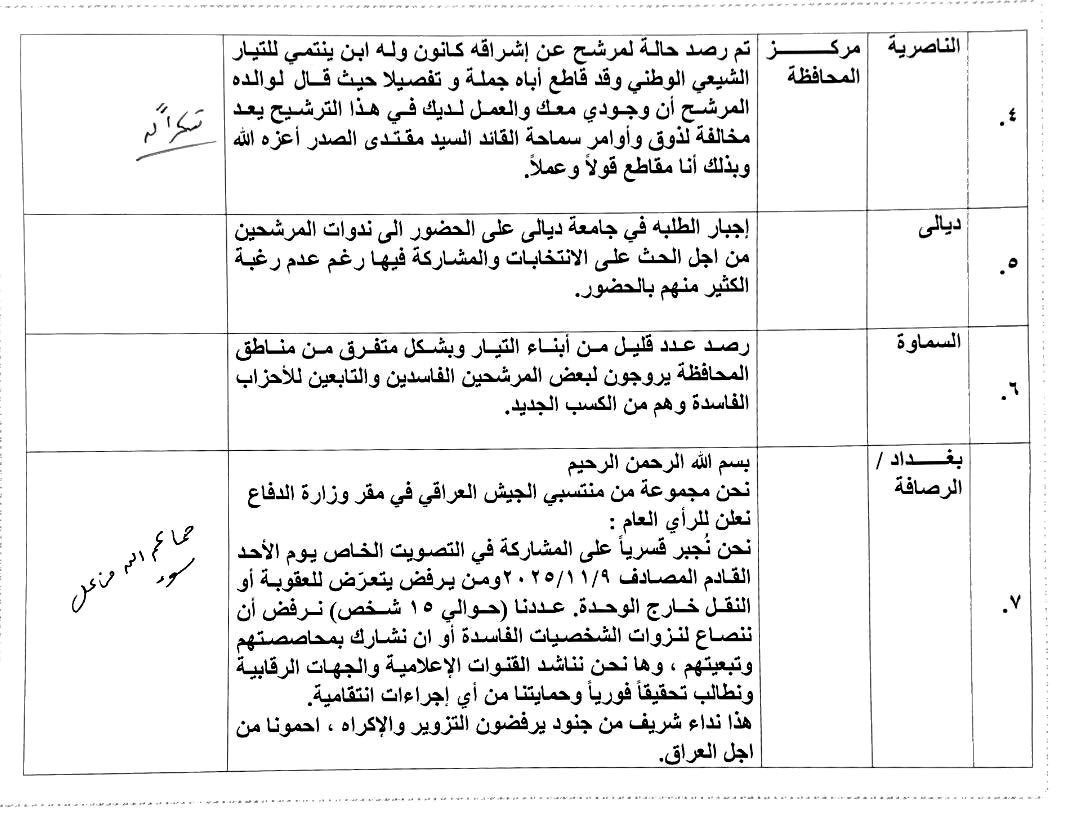 ٤.
الناصرية
مركز
المحافظة
تم رصد حالة لمرشح عن إشراقه كانون وله ابن ينتمي للتيار
الشيعي الوطني وقد قاطع أباه جملة و تفصيلا حيث قال لوالده
المرشح أن وجودي معك والعمل لديك في هذا الترشيح يعد
مخالفة لذوق وأوامر سماحة القائد السيد مقتدى الصدر أعزه الله
وبذلك أنا مقاطع قولاً وعملاً.
شكراً له
٥.
ديالى
إجبار الطلبه في جامعة ديالى على الحضور الى ندوات المرشحين
من اجل الحث على الانتخابات والمشاركة فيها رغم عدم رغبة
الكثير منهم بالحضور.
٦.
السماوة
رصد عدد قليل من أبناء التيار وبشكل متفرق من مناطق
المحافظة يروجون لبعض المرشحين الفاسدين والتابعين للأحزاب
الفاسدة وهم من الكسب الجديد.
٧.
بغداد /
الرصافة
بسم الله الرحمن الرحيم
نحن مجموعة من منتسبي الجيش العراقي في مقر وزارة الدفاع
نعلن للرأي العام :
نحن نُجبر قسرياً على المشاركة في التصويت الخاص يوم الأحد
القادم المصادف ٢٠٢٥/١١/٩ ومن يرفض يتعرّض للعقوبة أو
النقل خارج الوحدة. عددنا (حوالي ١٥ شخص) نرفض أن
ننصاع لنزوات الشخصيات الفاسدة أو ان نشارك بمحاصصتهم
وتبعيتهم ، وها نحن نناشد القنوات الإعلامية والجهات الرقابية
ونطالب تحقيقاً فورياً وحمايتنا من أي إجراءات انتقامية.
هذا نداء شريف من جنود يرفضون التزوير والإكراه ، احمونا من
اجل العراق.
حماكم الله من كل
سوء